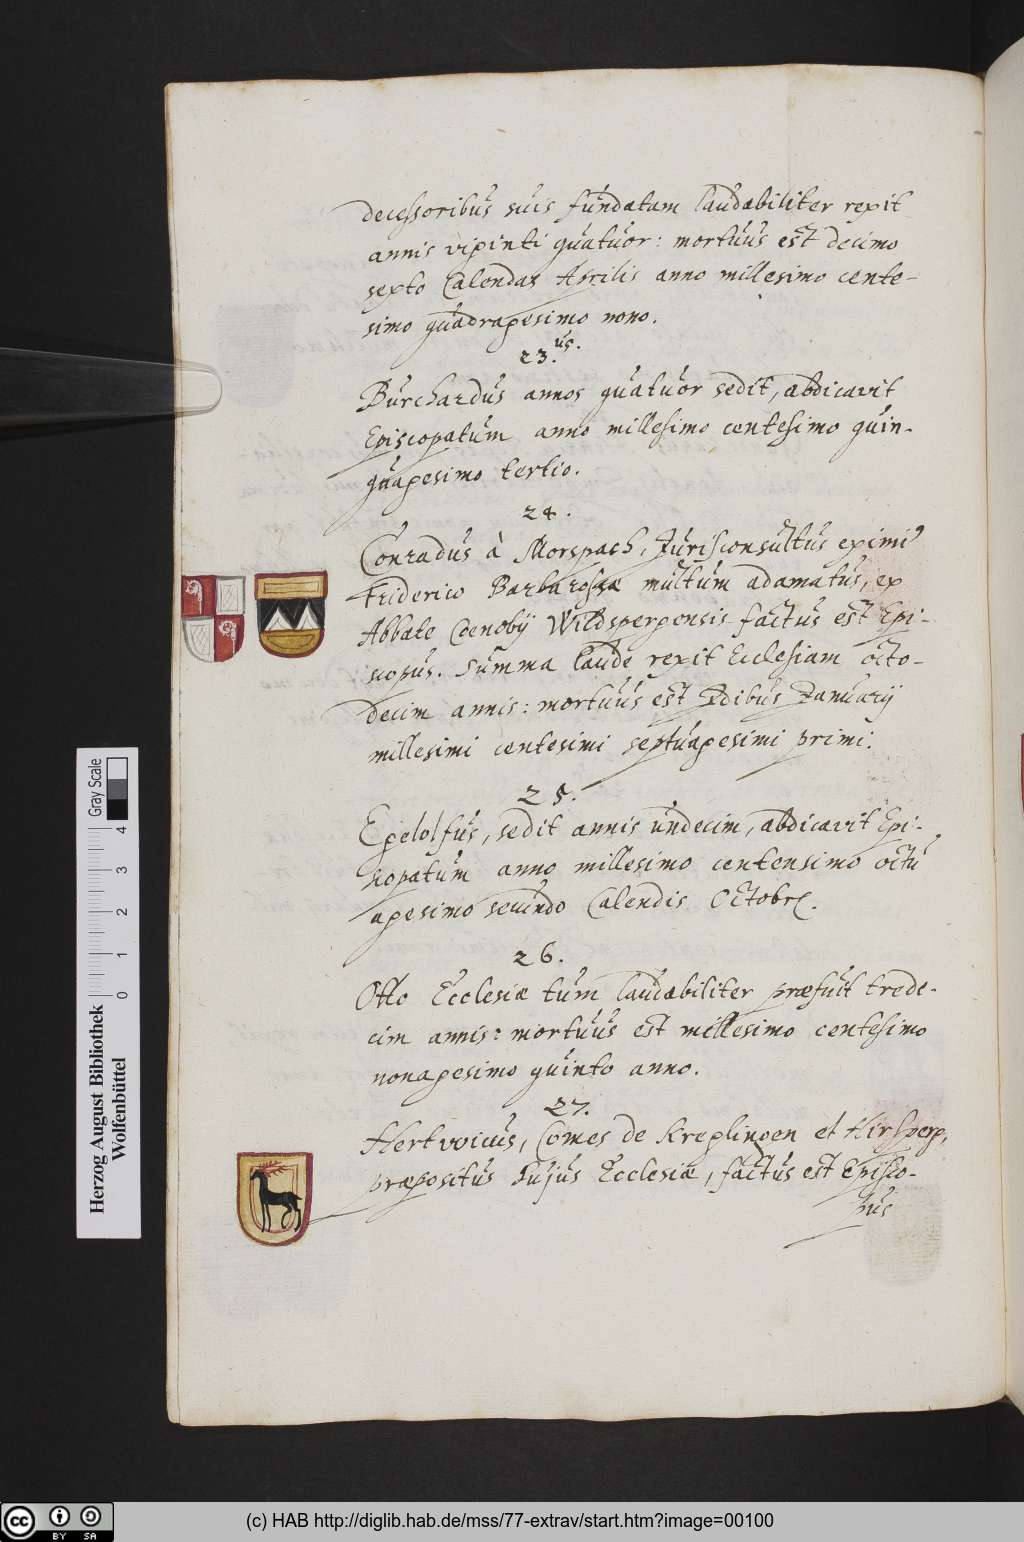 decessoribus suis fundatam laudabiliter rexit
annis viginti quatuor: mortuus est decimo
sexto Calendas Aprilis anno millesimo cente-
simo quadragesimo nono.
23.us.
Burchardus annos quatuor sedit, abdicavit
Episcopatum anno millesimo centesimo quin-
quagesimo tertio.
24.
Conradus à Morspach, Jurisconsultus eximi9
Friderico Barbarossæ multum adamatus, ex
Abbate Coenobij Wildspergensis factus est Epi-
scopus. Summa laude rexit Ecclesiam octo-
decim annis: mortuus est Idibus Januarij
millesimi centesimi septuagesimi primi.
25.
Egelolfus, sedit annis undecim, abdicavit Epi-
scopatum anno millesimo centensimo octu
agesimo secundo Calendis Octobr.
26.
Otto Ecclesiæ tum laudabiliter præfuit trede-
cim annis: mortuus est millesimo centesimo
nonagesimo quinto anno.
27.
Hertvvicus, Comes de Kreglingen et Hirsperg,
præpositus hujus Ecclesiæ, factus est Episco-
pus
Gray Scale
0 1 2 3 4
Herzog August Bibliothek
Wolfenbüttel
cc BY SA
(c) HAB http://diglib.hab.de/mss/77-extrav/start.htm?image=00100